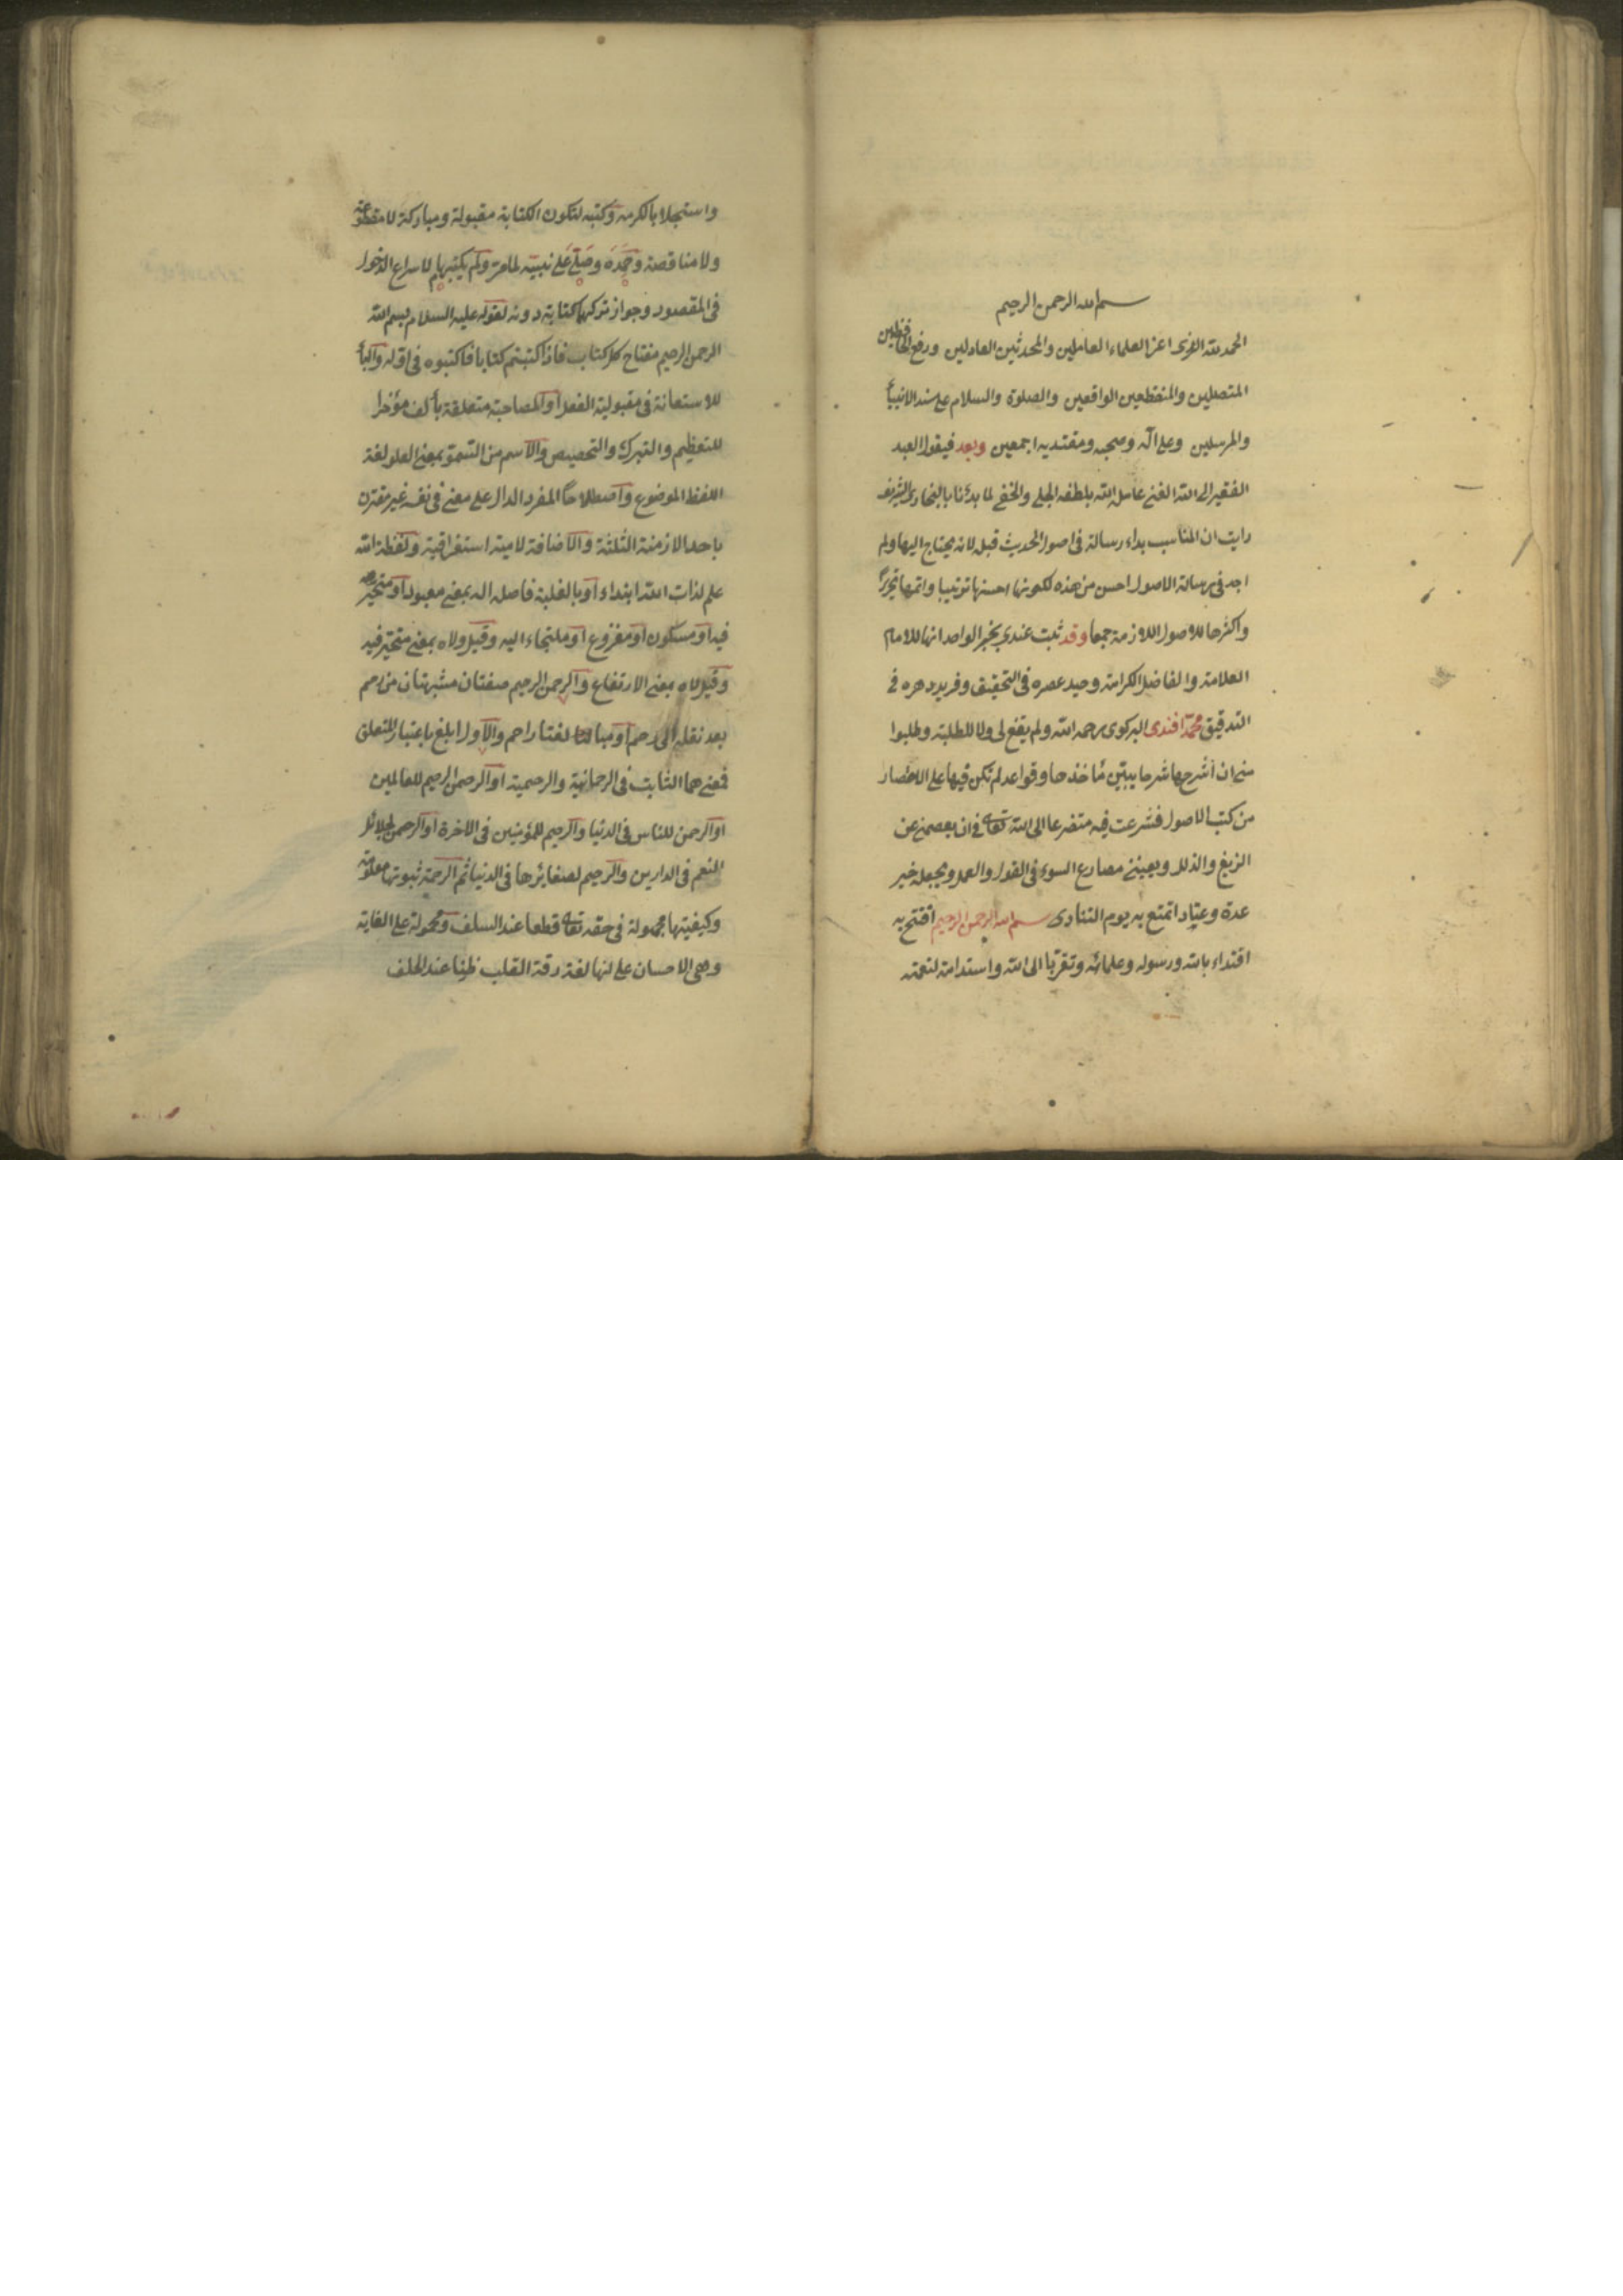 بسم الله الرحمن الرحيم
الحمد لله الذى اعز العلماء العاملين والمحدثين العادلين ورفع الحافظين
المتصلين والمنقطعين الواقعين والصلوة والسلام على سند الانبياء
والمرسلين وعلى آله وصحبه ومقتديه اجمعين وبعد فيقول العبد
الفقير الى الله الغنى عامله الله بلطفه الجلى والخفى لما بدئنا بالبخارى الشريف
رايت ان المناسب بداء رسالة فى اصول الحديث قبل لانه يحتاج اليها ولم
اجد فى رسالة الاصول احسن من هذه لكونها احسنها ترتيبا واتمها تحريرا
واكثرها للاصول اللازمة جمعا وقد ثبت عندى بخبر الواحد انها للامام
العلامة والفاضل الكرامة وحيد عصره فى التحقيق وفريد دهره فى
التدقيق محمد افندى البركوى رحمه الله ولم يقع لى ولا للطلبة وطلبوا
منى ان اشرحها شرحا يبين مأخذها وقواعد لم تكن فيها على الاقتصار
من كتب الاصول فشرعت فيه متضرعا الى الله تعالى فى ان يعصمنى عن
الزيغ والذلل ويعيننى مصارع السوء فى القول والعمل ويجعله خير
عدة وعتاد اتمتع به يوم التنادى بسم الله الرحمن الرحيم افتتح به
اقتداء بالله ورسوله وعلمائه وتقربا الى الله واستدامة لنعمته
واستجلابا لكرمه وكتبه لتكون الكتابة مقبولة ومباركة لا مقطوعة
ولا مناقصة وحمده وصلى على نبيه لما مر ولم يكتبهما لاسراع الدخول
فى المقصود وجواز تركهما كتابة دونه لقوله عليه السلام بسم الله
الرحمن الرحيم مفتاح كل كتاب فاذا كتبتم كتابا فاكتبوه فى اوله والباء
للاستعانة فى مقبولية الفعل او المصاحبة متعلقة بألف مؤخرا
للتعظيم والتبرك والتخصيص والاسم من السمو بمعنى العلو لغة
اللفظ الموضوع واصطلاحا المفرد الدال على معنى فى نفسه غير مقترن
باحد الازمنة الثلثة والاضافة لامية استغراقية ولفظة الله
علم لذات الله ابتداء او بالغلبة فاصله اله بمعنى معبود او متحير
فيه او مسكون او مفزوع او ملتجاء اليه وقيل ولاه بمعنى متحير فيه
وقيل لاه بمعنى الارتفاع والرحمن الرحيم صفتان مشبهتان من رحم
بعد نقله الى رحم او مبالغتا راحم والاول ابلغ باعتبار المتعلق
فمعنى هما الثابت فى الرحمانية والرحيمية او الرحمن الرحيم للعالمين
او الرحمن للناس فى الدنيا والرحيم للمؤمنين فى الاخرة او الرحمن لجلائل
النعم فى الدارين والرحيم لصغائرها فى الدنيا ثم الرحمة ثبوتها معلومة
وكيفيتها مجهولة فى حقه تعالى قطعا عند السلف ومحمولة على الغاية
وهى الاحسان على انها لغة رقة القلب ظنا عند الخلف